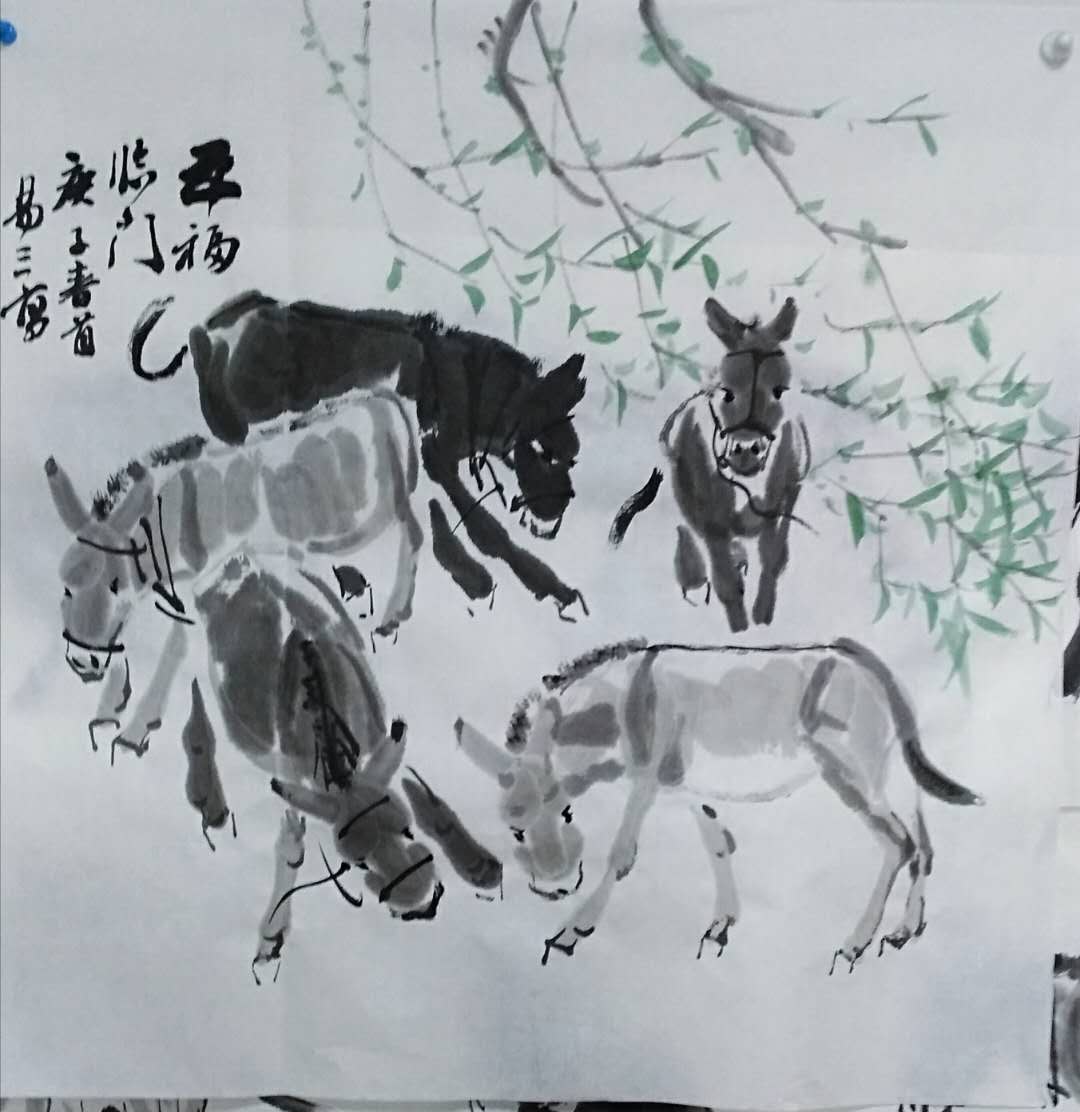 五福
临门
庚子春首
易三写